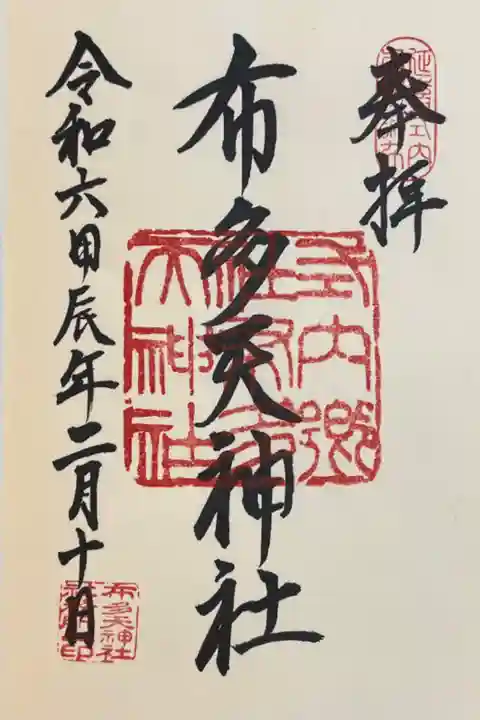 奉拝
延喜式内
布多天神社
式内郷社布多天神社
令和六甲辰年二月十日
布多天神社